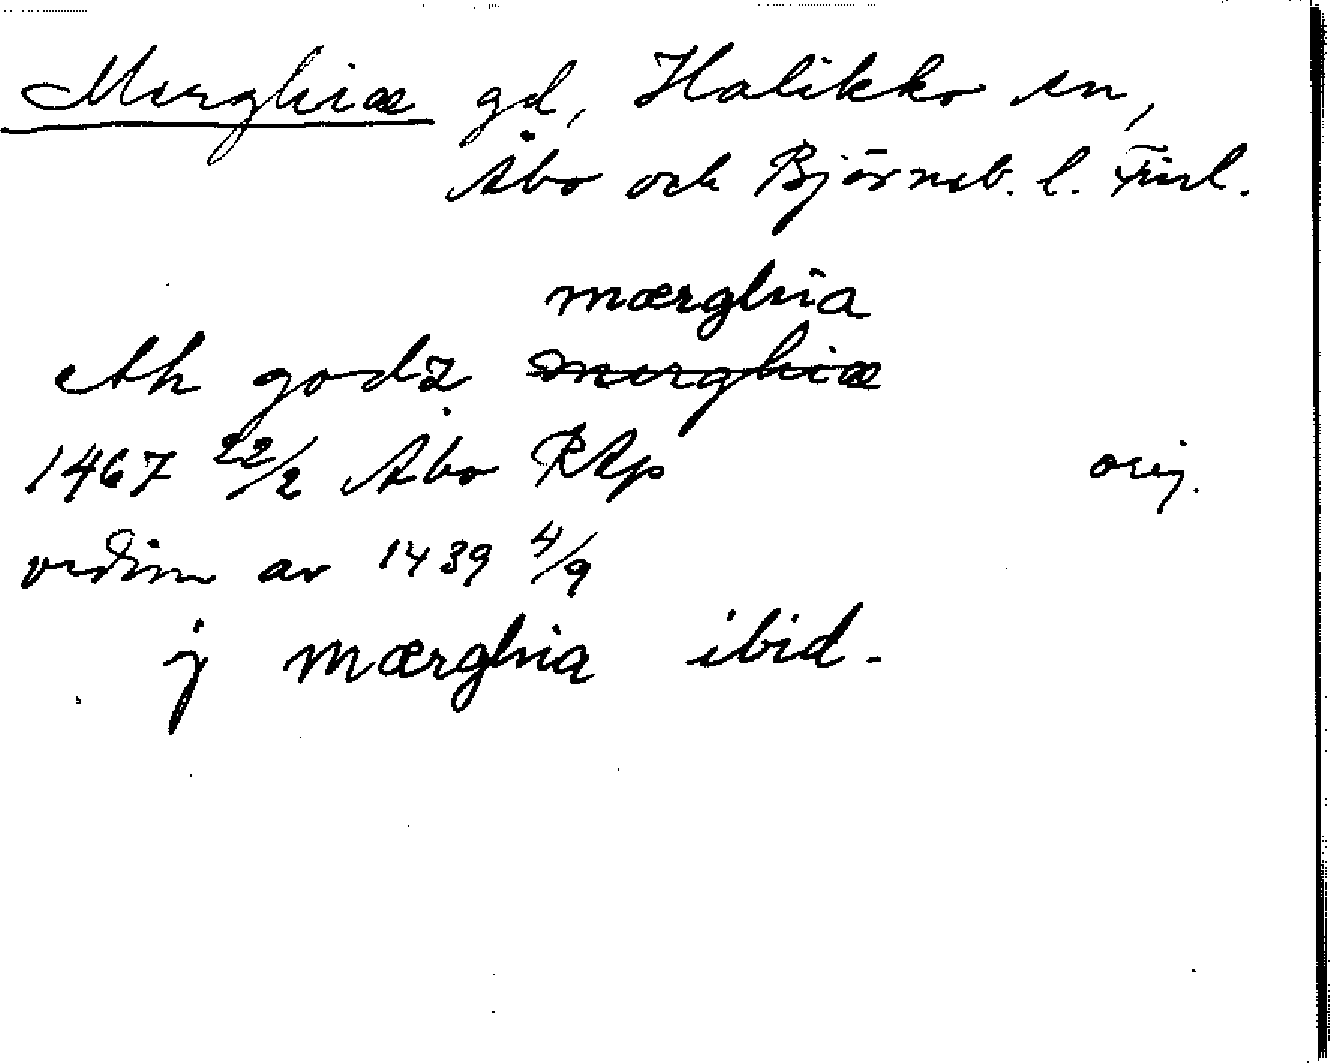 Merghiæ gd, Halikko sn,
Åbo och Björneb. l. Finl.
mærghia
eth godz merghiæ
1467 22/2 Åbo RAp orig.
vidim av 1439 4/9
j mærghia ibid.